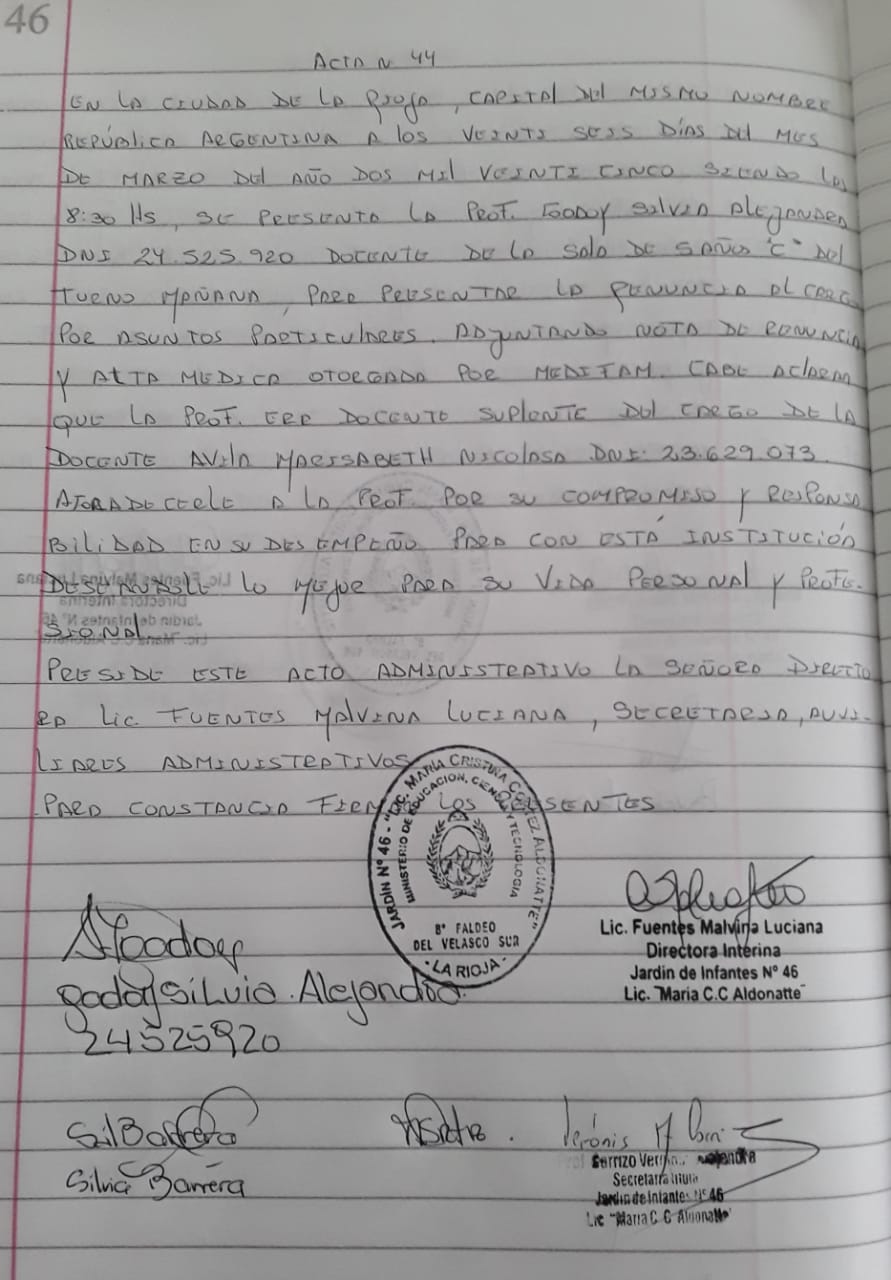 46
ACTA N 44
EN LA CIUDAD DE LA RIOJA, CAPITAL DEL MISMO NOMBRE
REPÚBLICA ARGENTINA A LOS VEINTI SEIS DÍAS DEL MES
DE MARZO DEL AÑO DOS MIL VEINTI CINCO SIENDO LAS
8:30 Hs, SE PRESENTA LA PROF. GODOY SILVIA ALEJANDRA
DNI 24.525.920 DOCENTE DE LA SALA DE 5 AÑOS "C" DEL
TURNO MAÑANA, PARA PRESENTAR LA RENUNCIA AL CARGO
POR ASUNTOS PARTICULARES. ADJUNTANDO NOTA DE RENUNCIA
Y ALTA MEDICA OTORGADA POR MEDITAM. CABE ACLARAR
QUE LA PROF. ERA DOCENTE SUPLENTE DEL CARGO DE LA
DOCENTE AVILA MARISABETH NICOLASA DNI: 23.629.073.
A LA PROF. POR SU COMPROMISO Y RESPONSA
BILIDAD EN SU DESEMPEÑO PARA CON ESTÁ INSTITUCIÓN
LO MEJOR PARA SU VIDA PERSONAL Y PROFE-
SIONAL.
PRESIDE ESTE ACTO ADMINISTRATIVO LA SEÑORA DIRECTO
RA LIC. FUENTES MALVINA LUCIANA, SECRETARIA, AUXI-
LIARES ADMINISTRATIVOS
PARA CONSTANCIA FIRMAN LOS PRESENTES
JARDÍN Nº 46 - "LIC. MARÍA CRISTINA CORTEZ ALDONATTE"
MINISTERIO DE EDUCACIÓN, CIENCIA Y TECNOLOGIA
Bº FALDEO
DEL VELASCO SUR
- LA RIOJA -
Lic. Fuentes Malvina Luciana
Directora Interina
Jardin de Infantes Nº 46
Lic. "Maria C.C Aldonatte"
Godoy Silvia Alejandra
24525920
Silvia Barrera
Secretaria
Jardin de Infantes Nº 46
Lic "Maria C.C Aldonatte"